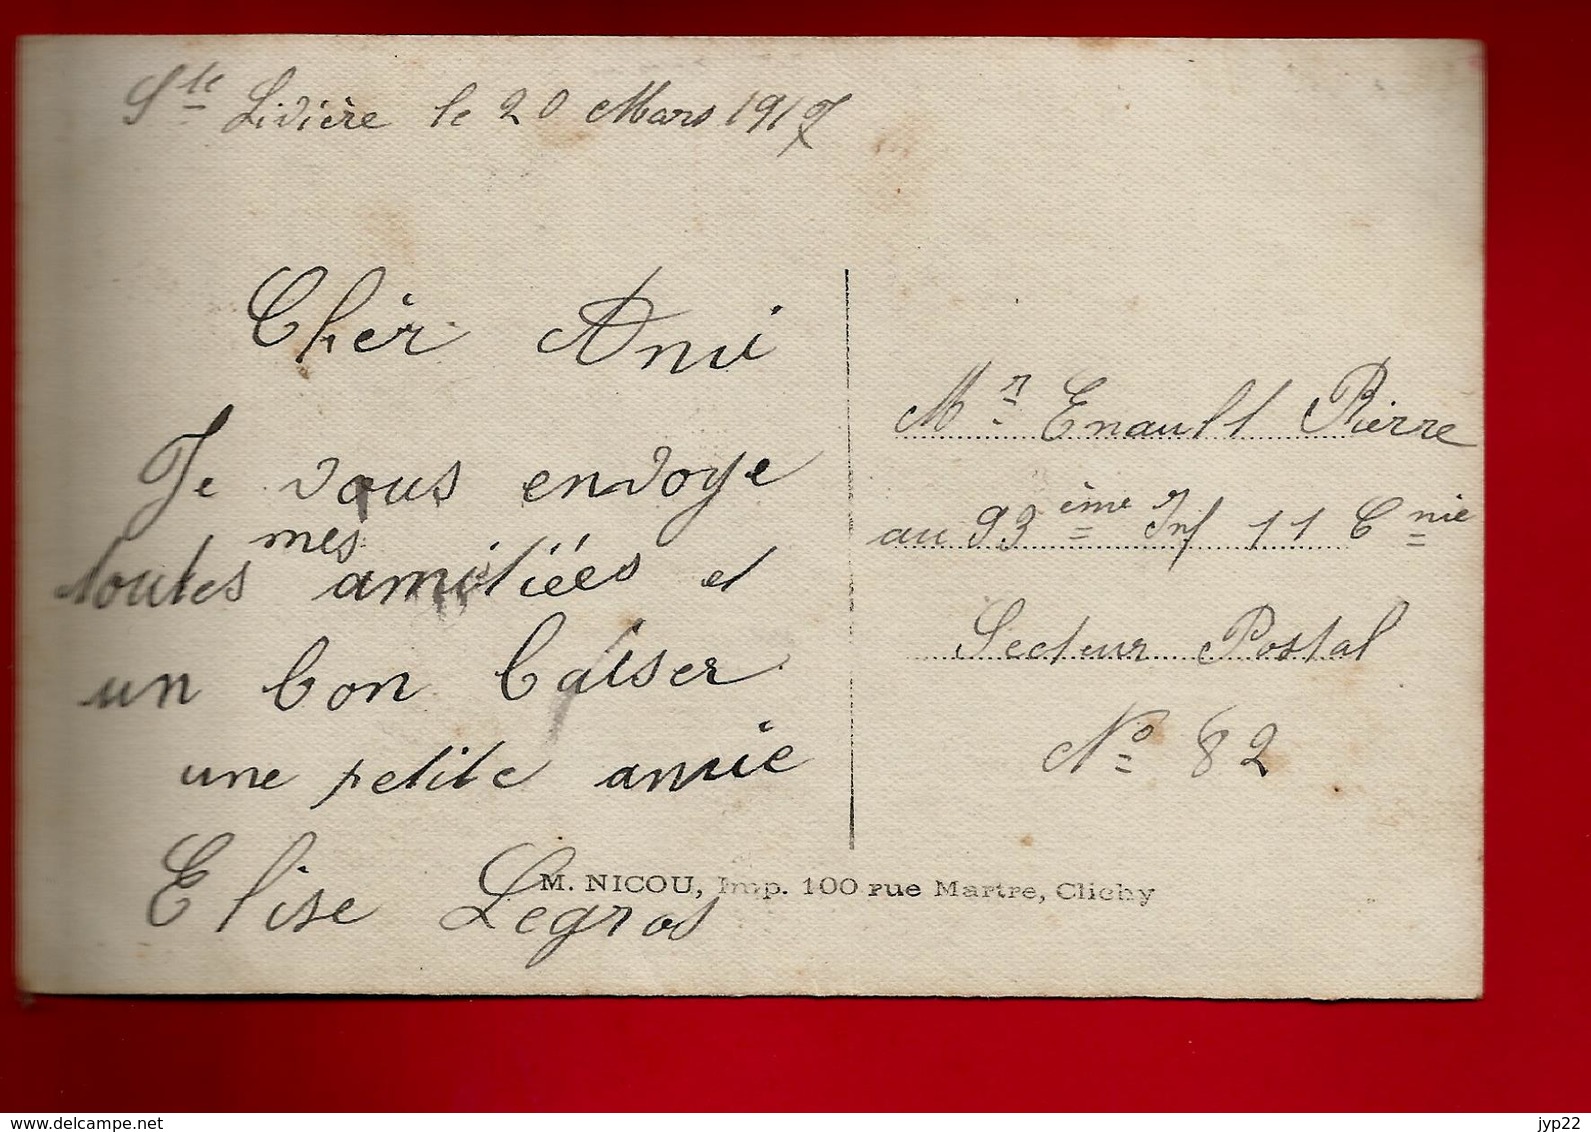 Ste Livière le 20 Mars 1917
Chèr Ami
Je vous envoye
mes
toutes amitiées et
un bon baiser
une petite amie
Elise Legros
Mr Enault Pierre
au 93 ème Inf 11 Cnie
Secteur Postal
No 82
M. NICOU, Imp. 100 rue Martre, Clichy
www.delcampe.net
jyp22